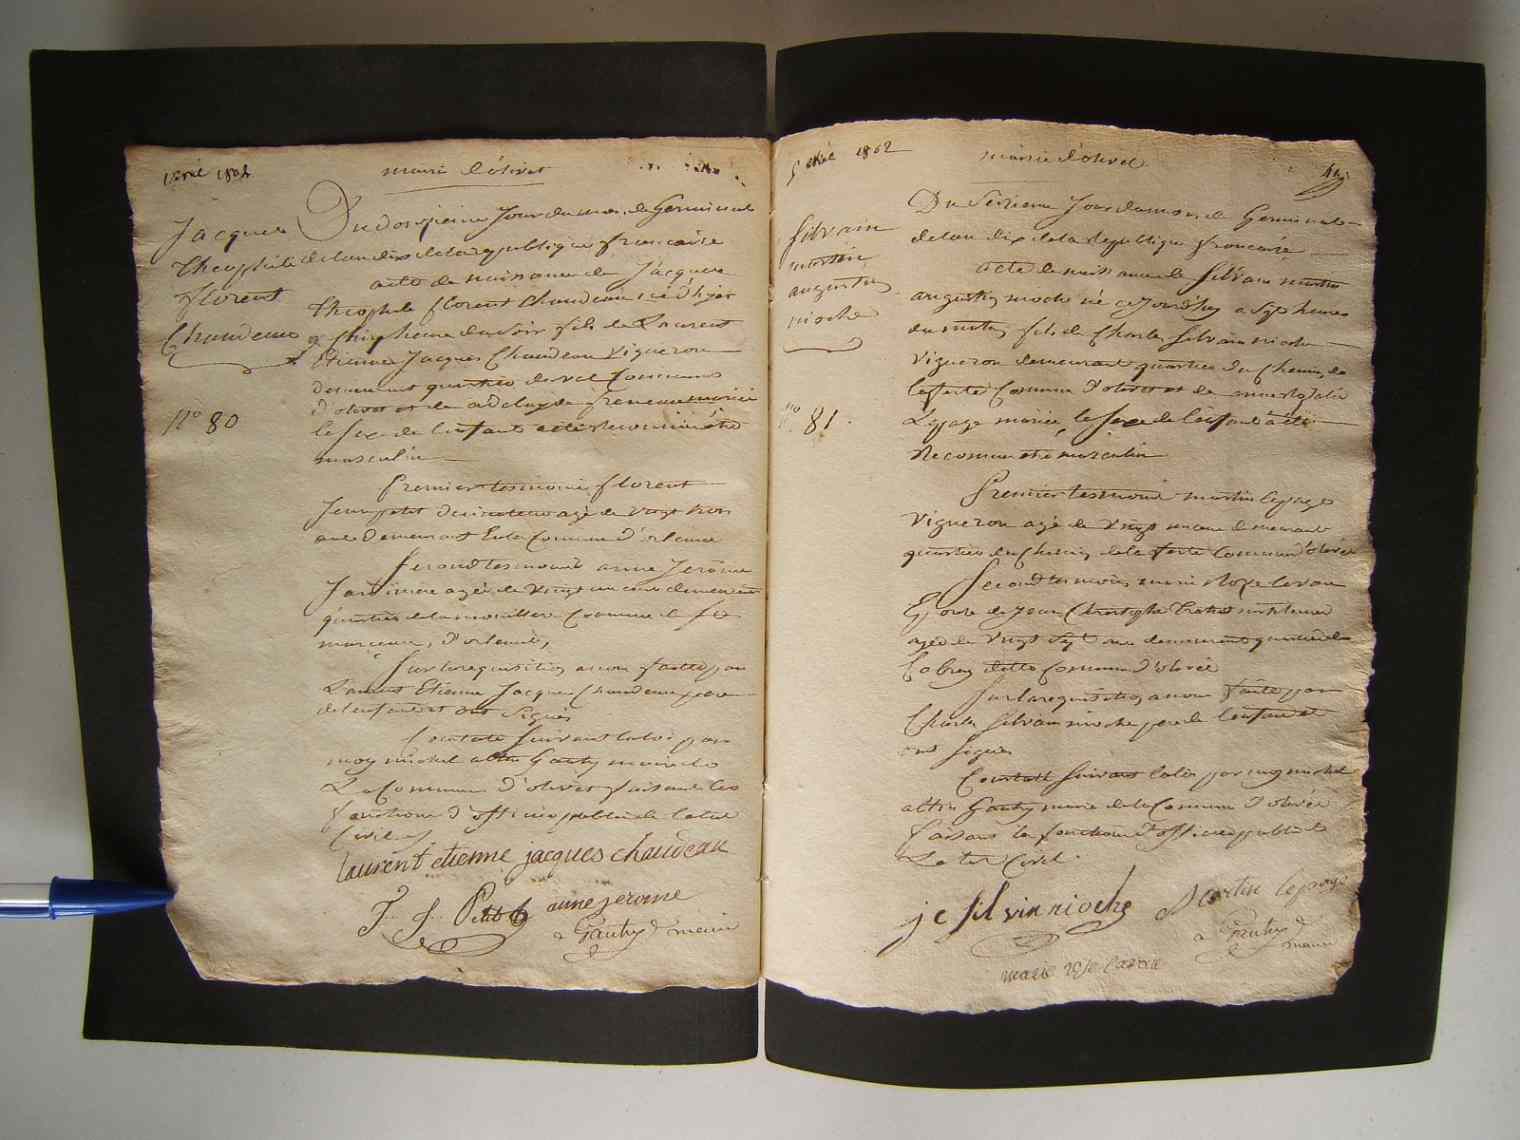 avril 1802
mairie d'olivet
Jacques
Theophile
florent
Chaudeau
N° 80
Du douzieme Jour du mois de Germinal
de l'an dix de la republique francaise
acte de naissance de Jacques
theophile florent Chaudeau né d'hyer
heure du soir fils de Laurent
Etienne Jacques Chaudeau Vigneron
demeurant quartier du val Commune
d'olivet et de adelayde mariée
le sexe de l'enfant a été reconnu être
masculin
Premier tesmoin florent
Jean petit agé de vingt trois
ans demeurant En la Commune d'orleans
Second tesmoin anne Jerome
agée de vingt un ans demeurant
quartier de la Commune de St
marceau, d'orleans,
Sur la requisition a nous faitte par
Laurent Etienne Jacques Chaudeau pere
de l'enfant et ont Signés
Constaté Suivant la loi par
moy michel Gauty maire de
La Commune d'olivet faisant les
fonctions d'officier public de l'etat
Civil
laurent etienne jacques chaudeau
J. f. Petit anne jerome
Gauty maire
5 avril 1802
mairie d'olivet
Silvain
martin
augustin
nioche
n° 81.
Du Seizieme Jour du mois de Germinal
de l'an dix de la Republique francaise
acte de naissance de Silvain martin
augustin nioche né ce Jourd'huy a sept heures
du matin fils de Charles Silvain nioche
Vigneron demeurant quartier du Chemin de
la ferté Commune d'olivet et de
Lepage mariée, le sexe de l'enfant a été
Reconnu etre masculin
Premier tesmoin martin lepage
Vigneron agé de vingt ans demeurant
quartier du Chemin de la ferté Commune d'olivet
Second tesmoin marie Roze
Epouse de Jean Christophe
agée de vingt sept ans demeurant quartier de
Commune d'olivet
Sur la requisition a nous faite par
Charles Silvain nioche pere de l'enfant et
ont Signés
Constaté Suivant la loi par moy michel
Gauty maire de la Commune d'olivet
faisant les fonctions d'officier public de
L'etat Civil.
j c silvin nioche Martin lepage
Gauty
maire
marie rose